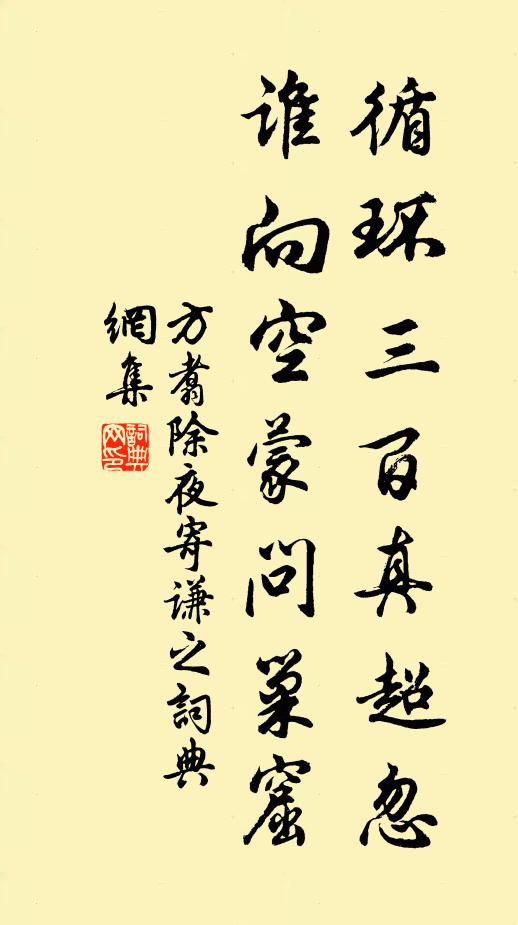 循环三百真超忽
谁向空蒙问巢窟
方翥除夜寄谦之詞典
網集
詞典
网印